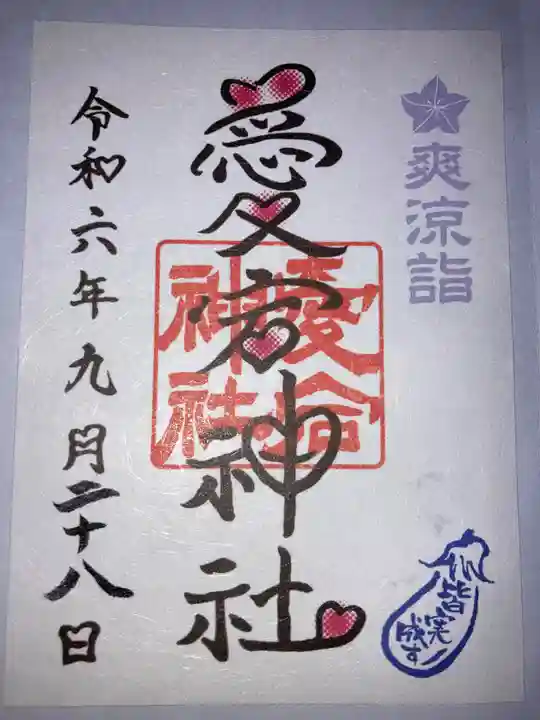 爽涼詣
愛宕神社
愛宕
神社
令和六年九月二十八日
皆実
成す